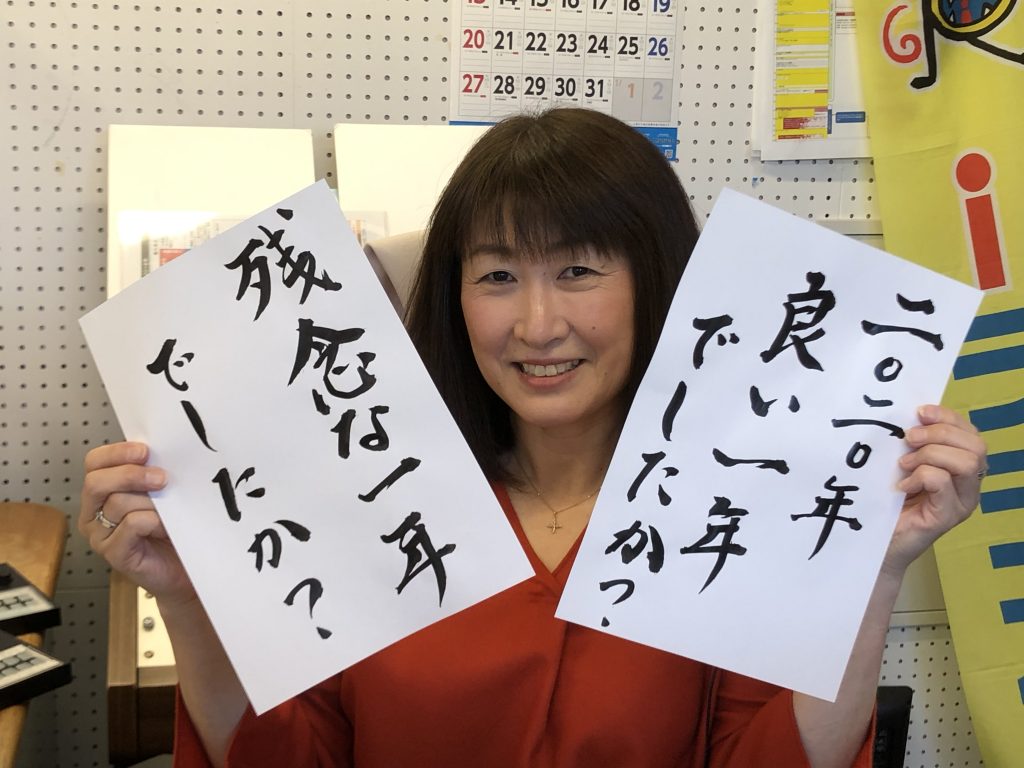 13 14 15 16 17 18 19
20 21 22 23 24 25 26
27 28 29 30 31 1 2
二〇二〇年
良い一年
でしたか?
残念な一年
でしたか?
i